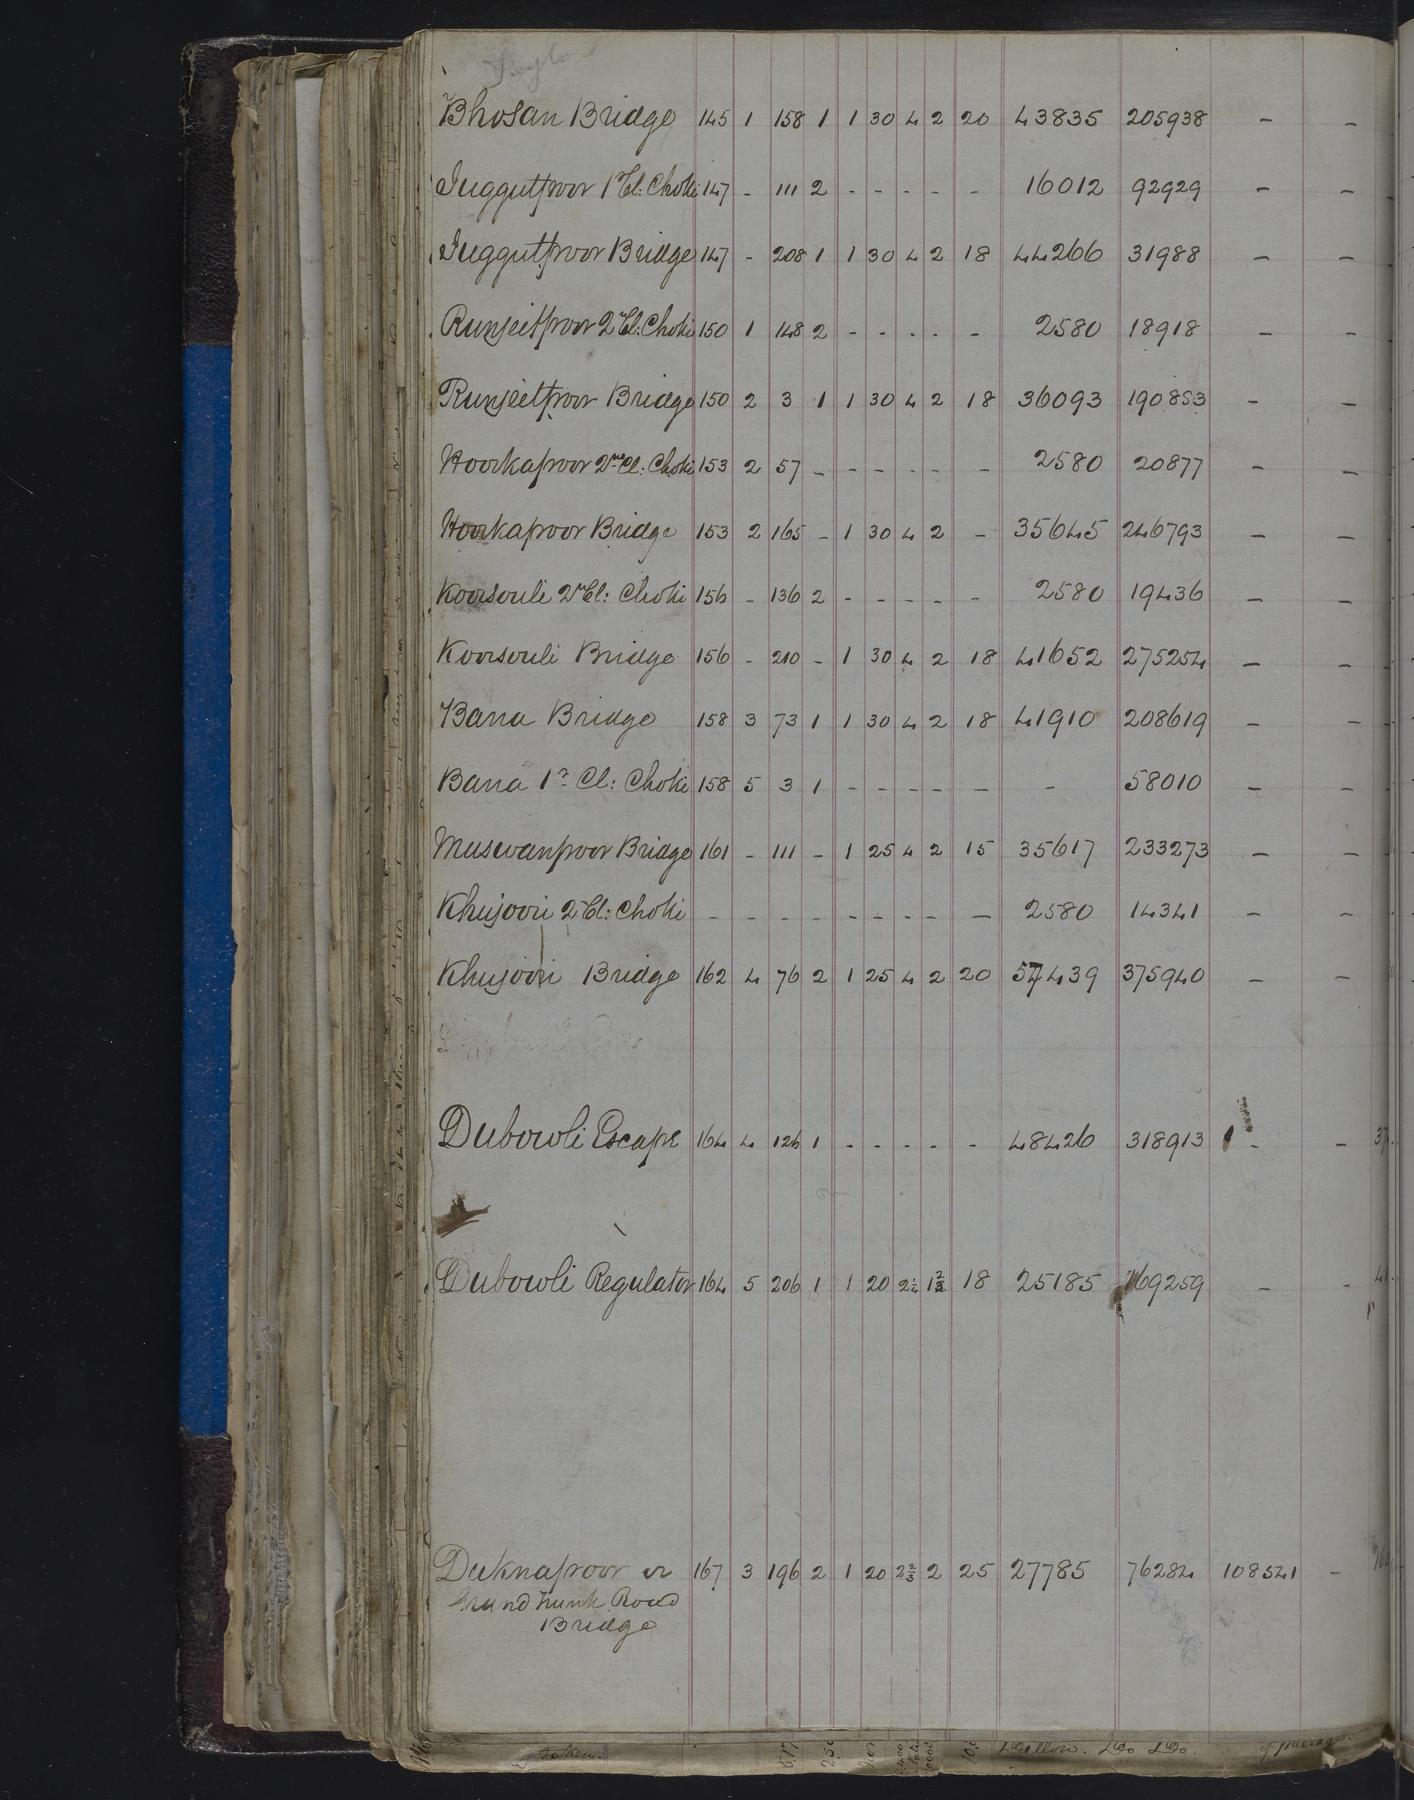 Bhosan Bridge 145 1 158 1 1 30 4 2 20 43835 205938 - -
Juggutpoor 1st Cl: Choki 147 - 111 2 - - - - - 16012 92929 - -
Juggutpoor Bridge 147 - 208 1 1 30 4 2 18 44266 31988 - -
Runjeetpoor 2d Cl: Choki 150 1 148 2 - - - - - 2580 18918 - -
Runjeetpoor Bridge 150 2 3 1 1 30 4 2 18 36093 190853 - -
Hoorkapoor 2nd Cl: Choki 153 2 57 - - - - - - 2580 20877 - -
Hoorkapoor Bridge 153 2 165 - 1 30 4 2 - 35645 246793 - -
Koorsouli 2d Cl: Choki 156 - 136 2 - - - - - 2580 19436 - -
Koorsouli Bridge 156 - 210 - 1 30 4 2 18 41652 275254 - -
Barra Bridge 158 3 73 1 1 30 4 2 18 41910 208619 - -
Barra 1st Cl: Choki 158 5 3 1 - - - - - - 58010 - -
Muswanpoor Bridge 161 - 111 - 1 25 4 2 15 35617 233273 - -
Khujoori 2d Cl: Choki - - - - - - - - - 2580 14341 - -
Khujoori Bridge 162 4 76 2 1 25 4 2 20 57439 375940 - -
Dubowli Escape 164 4 126 1 - - - - - 48426 318913 - -
Dubowli Regulator 164 5 206 1 1 20 2¼ 1⅔ 18 25185 169259 - -
Duknapoor or 167 3 196 2 1 20 2⅔ 2 25 27785 76284 108541 -
Grand Trunk Road
Bridge